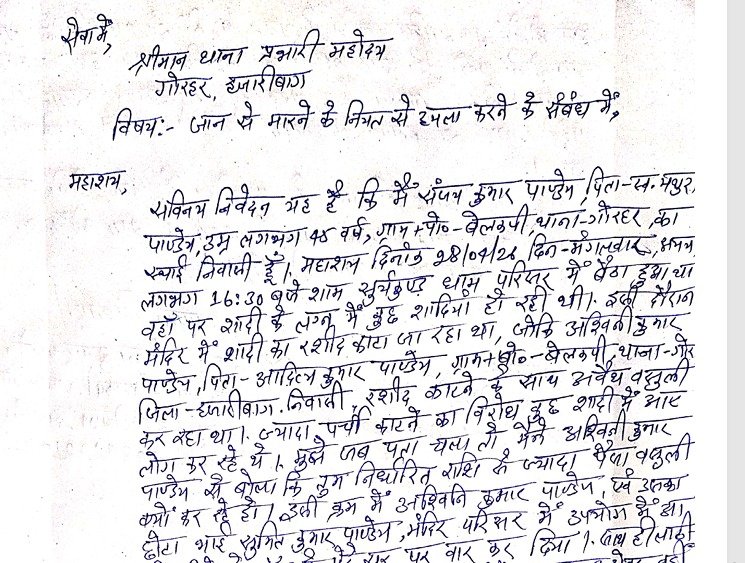 सेवा में,
श्रीमान थाना प्रभारी महोदय
गोरहर, हजारीबाग
विषय:- जान से मारने के नियत से हमला करने के संबंध में,
महाशय,
सविनय निवेदन यह है कि मैं संजय कुमार पाण्डेय, पिता-स्व. मथुर
पाण्डेय, उम्र लगभग 45 वर्ष, ग्राम+पो०-बेलकपी, थाना-गोरहर, का
स्थाई निवासी हूँ। महाशय दिनांक 28/04/26, दिन-मंगलवार, समय
लगभग 16:30 बजे शाम सुर्यकुण्ड धाम परिसर में बैठा हुआ था
वहाँ पर शादी के लग्न में कुछ शादियाँ हो रही थी। इसी दौरान
मंदिर में शादी का रशीद काटा जा रहा था, जोकि अश्विनी कुमार
पाण्डेय, पिता-आदित्य कुमार पाण्डेय, ग्राम+पो०-बेलकपी, थाना-गोर
जिला-हजारीबाग. निवासी, रशीद काटने के साथ अवैध वसुली
कर रहा था। ज्यादा पर्ची काटने का विरोध कुछ शादी में आए
लोग कर रहे थे। मुझे जब पता चला तो मैंने अश्विनी कुमार
पाण्डेय से बोला कि तुम निर्धारित राशि से ज्यादा पैसा वसुली
क्यों कर रहे हो। इसी क्रम में अश्विनि कुमार पाण्डेय, एवं उसका
छोटा भाई सुमित कुमार पाण्डेय, मंदिर परिसर में उपयोग में आ
पर वार कर दिया। साथ ही लाठी